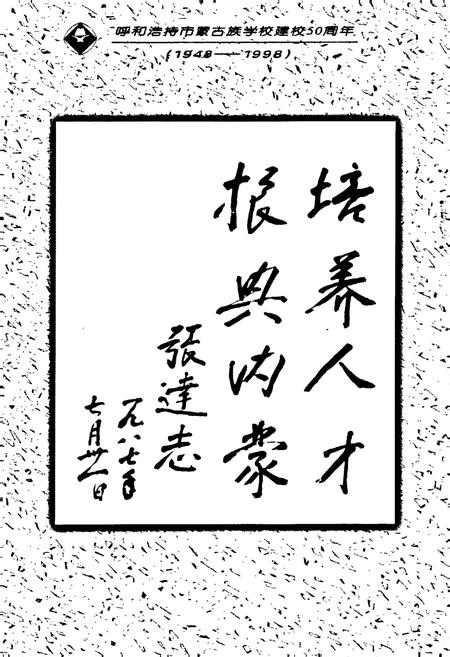 呼和浩特市蒙古族学校建校50周年
(1948——1998)
培养人才
振興内蒙
張達志
一九八七年
七月卅一日